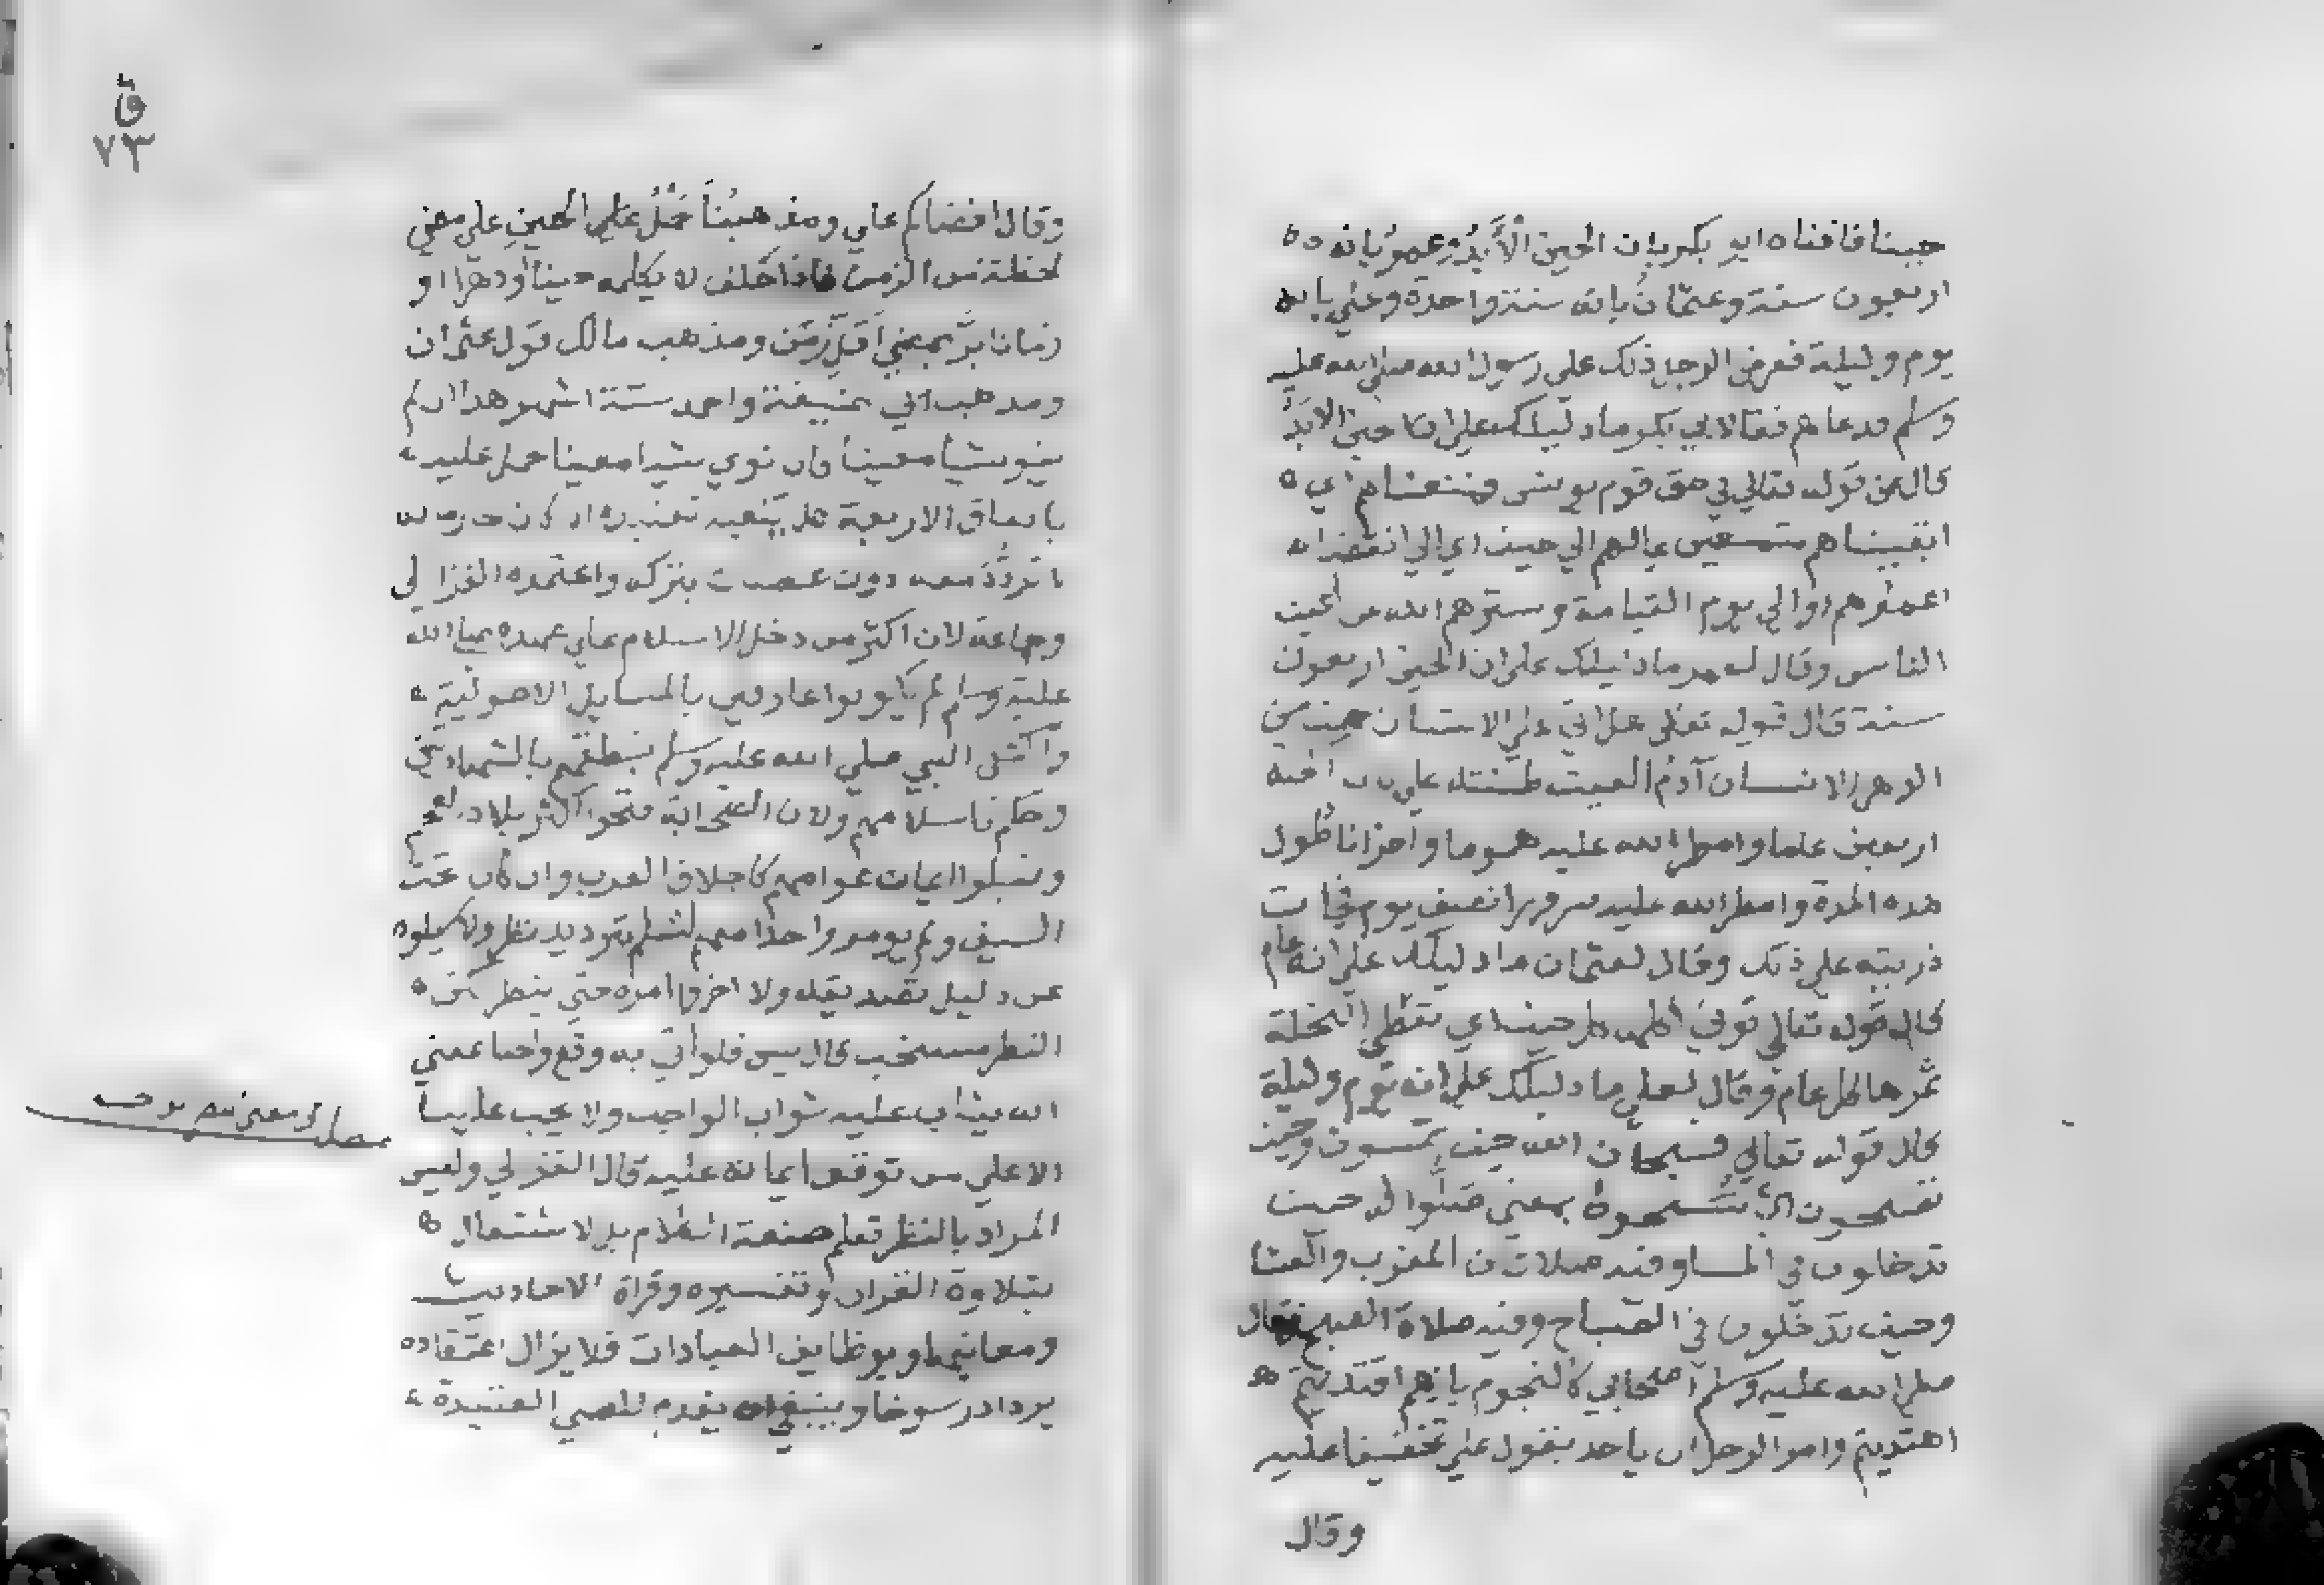 حينا فافتاه ابو بكر بان الحين الأبد وعمر بانه
اربعون سنة وعثمان بانه سنة واحدة وعلي بانه
يوم وليلة فعرض الرجل ذلك على رسول الله صلى الله عليه
وسلم فدعاهم فقال لابي بكر ما دليلك على ان الحين الابد
قال من قوله تعالى في حق قوم يونس فمتعناهم اي
ابقيناهم متمتعين بمالهم الي حين اي الي انقضاء
اعمارهم او الي يوم القيامة وسترهم الله عن اعين
الناس وقال لعمر ما دليلك على ان الحين اربعون
سنة قال قوله تعالى هل اتي على الانسان حين من
الدهر الانسان آدم القيت طينته على باب الجنة
اربعين عاما وامطر الله عليه هموما واحزانا طول
هذه المدة وامطر الله عليه سرورا نصف يوم فجات
ذريته على ذلك وقال لعثمان ما دليلك على انه عام
قال قوله تعالى توتي اكلها كل حين اي تعطي النخلة
ثمرها كل عام وقال لعلي ما دليلك على انه يوم وليلة
قال قوله تعالى فسبحان الله حين تمسون وحين
تصبحون اي سبحوه بمعني صلوا له حين
تدخلون في المسا وفيه صلاتان المغرب والعشا
وحين تدخلون في الصباح وفيه صلاة الصبح فقال
صلى الله عليه وسلم اصحابي كالنجوم بايهم اقتديتم
اهتديتم وامر الرجل ان ياخذ بقول علي تخفيفا عليه
وقال
ق
٧٣
وقال اقضاكم علي ومذهبنا حمل الحين علي معني
لحظة من الزمن فاذا حلف لا يكلمه حينا أو دهرا او
زمانا برّ بمعني أقل زمن ومذهب مالك قول عثمان
ومذهب ابي حنيفة واحمد ستة اشهر هذا ان لم
ينو شيا معينا فان نوي شيا معينا حمل عليه
باتفاق الاربعة
تردد معه دون عصيان بتركه واعتمده الغزالي
وجماعة لان اكثر من دخل الاسلام على عهده صلى الله
عليه وسلم لم يكونوا عارفين بالمسايل الاصولية
واكتفى النبي صلي الله عليه وسلم بنطقهم بالشهادتين
وحكم باسلامهم ولان الصحابة فتحوا اكثر بلاد العجم
وقبلوا ايمان عوامهم كاجلاف العرب وان كان تحت
السيف ولم يومروا احدا منهم اسلم بترديد نظر ولا سيلوه
عن دليل تصديقه ولا اخروا امره حتي ينظر
النظر مستحب قال يس فلو اتي به وقع واجبا بمعني
انه يثاب عليه ثواب الواجب ولا يجب علينا
الا على من توقف ايمانه عليه قال الغزالي وليس
المراد بالنظر تعلم صنعة الكلام بل الاشتغال
بتلاوة القران وتفسيره وقراة الاحاديث
ومعانيها وبوظايف العبادات فلا يزال اعتقاده
يزداد رسوخا وينبغي ان يقدم للصبي العقيدة